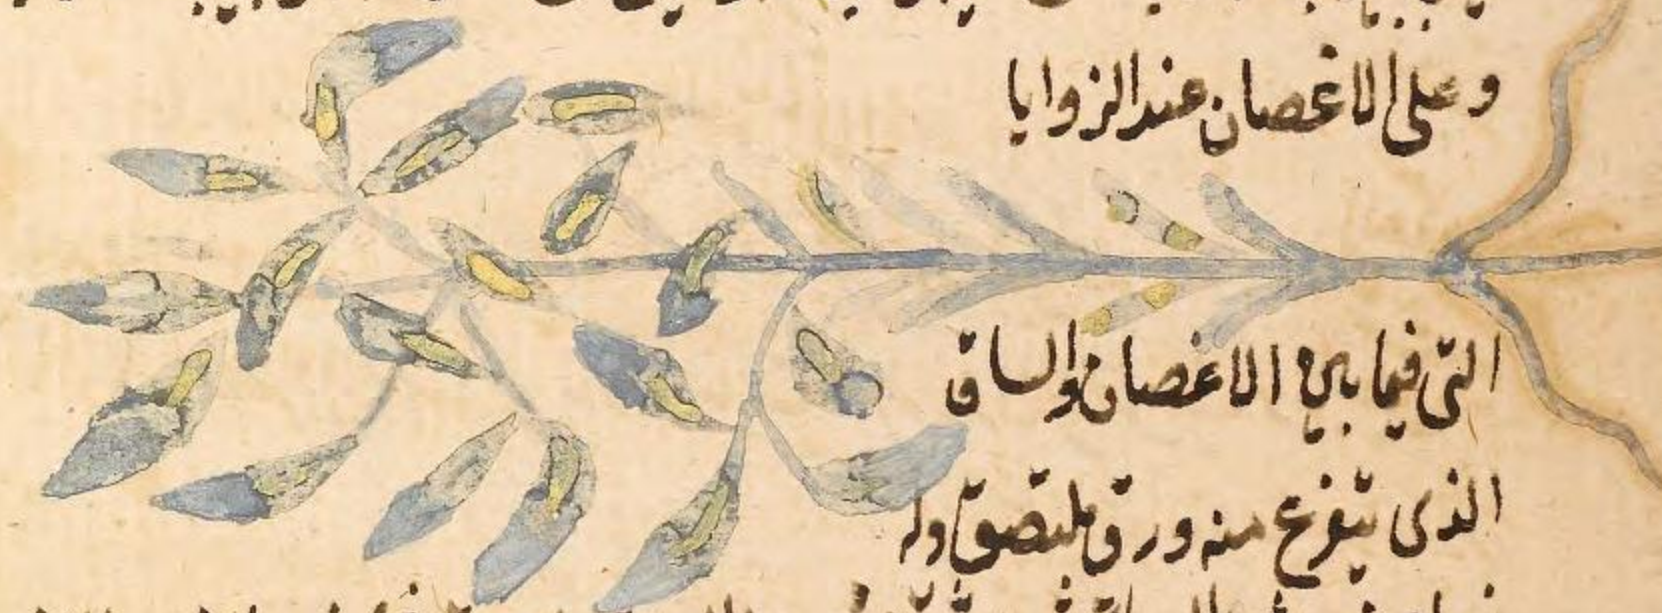 وعلى الاغصان عند الزوايا
التى فيما بين الاغصان والساق
الذى يتفرع منه ورق ملتصق وله